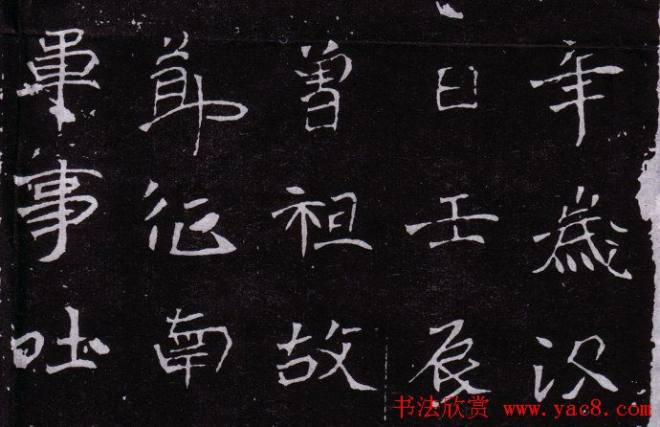 年歲次
日壬辰
曾祖故
前征南
軍事吐
书法欣赏 www.yac8.com